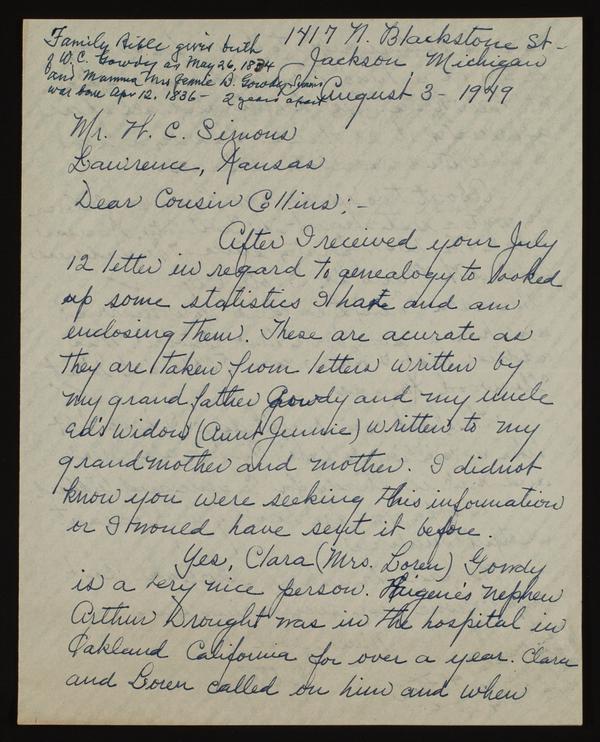 Family Bible gives birth
of W. C. Gowdy as May 26, 1834
and Mamma Mrs Jennie D. Gowdy Simons
was born Apr 12, 1836 - 2 years apart
1417 N. Blackstone St-
Jackson, Michigan
August 3 - 1949
Mr. W. C. Simons
Lawrence, Kansas
Dear Cousin Collins; -
After I received your July
12 letter in regard to genealogy to looked
up some statistics I have and am
enclosing them. These are acurate as
they are taken from letters written by
my grand father Gowdy and my uncle
Ed's widow (Aunt Jennie) written to my
grandmother and mother. I did not
know you were seeking this information
or I would have sent it before.
Yes, Clara (Mrs. Loren) Gowdy
is a very nice person. nephew
Arthur Drought was in the hospital in
Oakland California for over a year. Clara
and Loren called on him and when